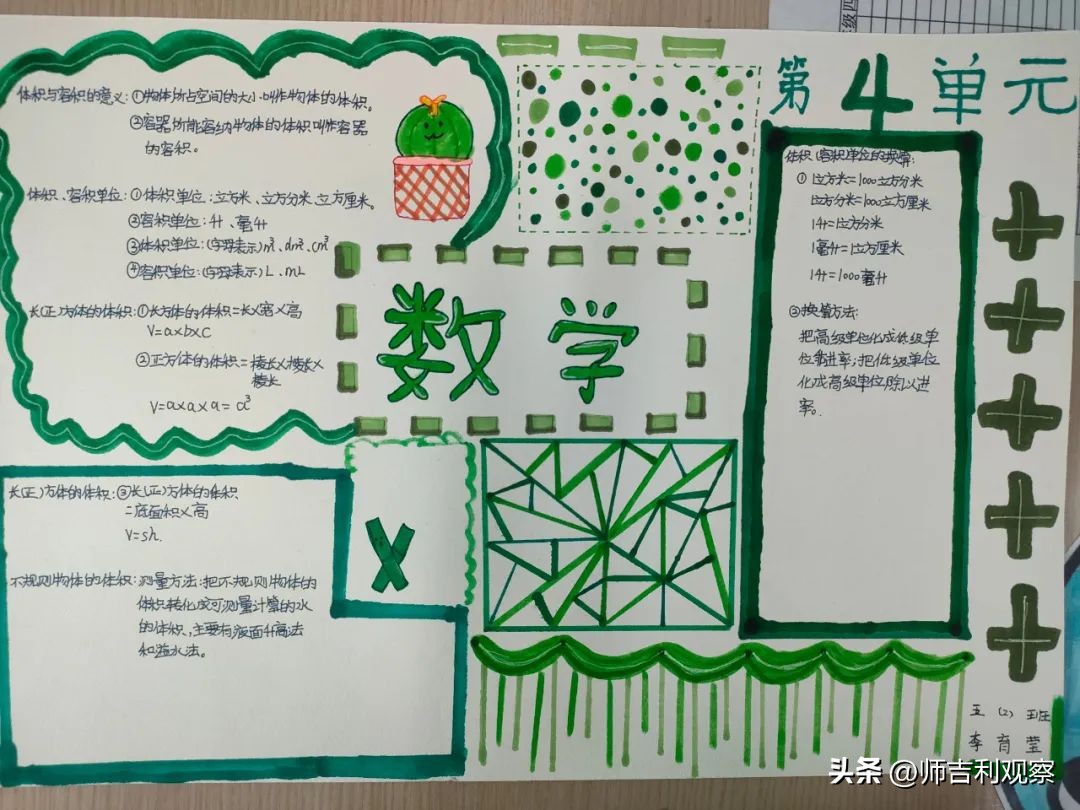 第4单元
体积与容积的意义:①物体所占空间的大小叫作物体的体积。
②容器所能容纳物体的体积叫作容器
的容积。
体积、容积单位:①体积单位:立方米、立方分米、立方厘米。
②容积单位:升、毫升
③体积单位:(字母表示)m³、dm³、cm³
④容积单位:(字母表示)L、mL
长(正)方体的体积:①长方体的体积=长×宽×高
V=a×b×c
②正方体的体积=棱长×棱长×
棱长
V=a×a×a=a³
数学
长(正)方体的体积:③长(正)方体的体积
=底面积×高
V=sh.
不规则物体的体积:测量方法:把不规则物体的
体积转化成可测量计算的水
的体积,主要有液面升高法
和溢水法。
体积、容积单位的换算:
①1立方米=1000立方分米
1立方分米=1000立方厘米
1升=1立方分米
1毫升=1立方厘米
1升=1000毫升
②换算方法:
把高级单位化成低级单
位乘进率;把低级单位
化成高级单位除以进
率。
五(2)班
李育莹
头条 @师吉利观察